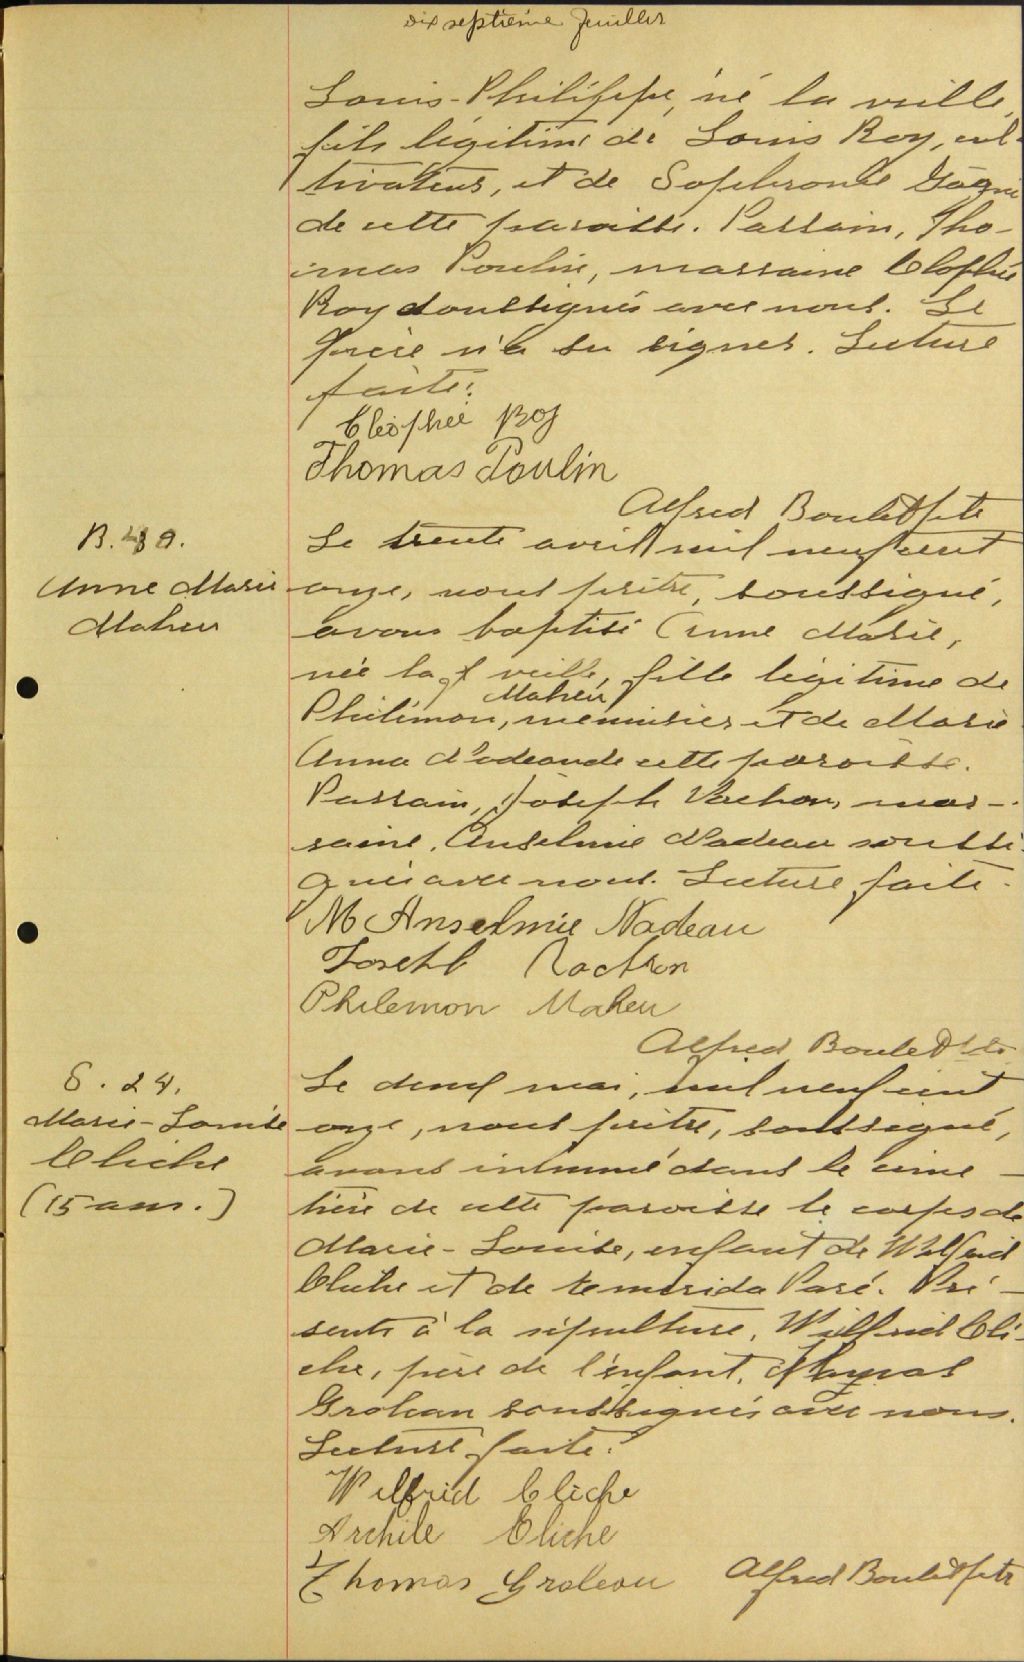 dix septième feuillet
Louis-Philippe, né la veille,
fils légitime de Louis Roy, cul-
tivateur, et de Sophronie Gagné
de cette paroisse. Parrain, Tho-
mas Poulin, marraine Cléophée
Roy soussignés avec nous. Le
père n'a su signer. Lecture
faite.
Cléophée Roy
Thomas Poulin
Alfred Boulet Ptre
B. 49.
Anne Marie
Maheu
Le trente avril mil neuf cent
onze, nous prêtre, soussigné,
avons baptisé Anne Marie,
née la veille, fille légitime de
Maheu
Philémon, menuisier et de Marie
Anna Nadeau de cette paroisse.
Parrain, Joseph Vachon, mar-
raine, Anselmie Nadeau soussi-
gnés avec nous. Lecture faite.
M Anselmie Nadeau
Joseph Vachon
Philemon Maheu
Alfred Boulet Ptre
S. 24.
Marie-Louise
Cliche
(15 ans.)
Le deux mai, mil neuf cent
onze, nous prêtre, soussigné,
avons inhumé dans le cime-
tière de cette paroisse le corps de
Marie-Louise, enfant de Wilfrid
Cliche et de Paré. Pré-
sents à la sépulture, Wilfrid Cli-
che, père de l'enfant, Thomas
Groleau soussignés avec nous.
Lecture faite.
Wilfrid Cliche
Archile Cliche
Thomas Groleau
Alfred Boulet Ptre